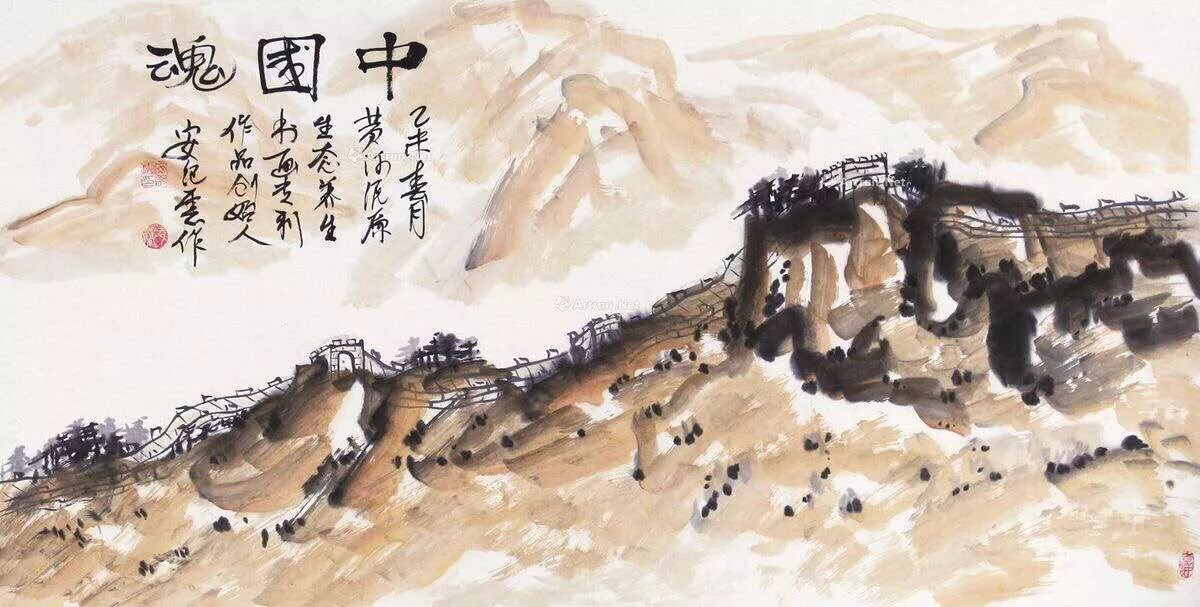 中國魂
乙未春月
黄河原
生态养生
书画专利
作品创始人
安作
Artron.Net